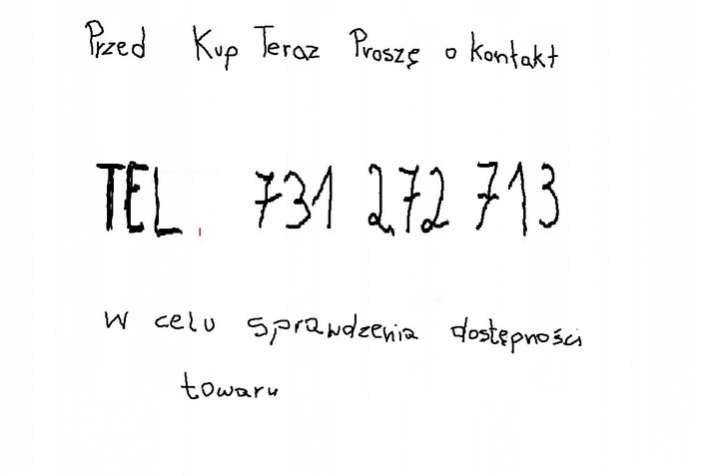 Przed Kup Teraz Proszę o kontakt
TEL. 731 272 713
w celu sprawdzenia dostępności
towaru